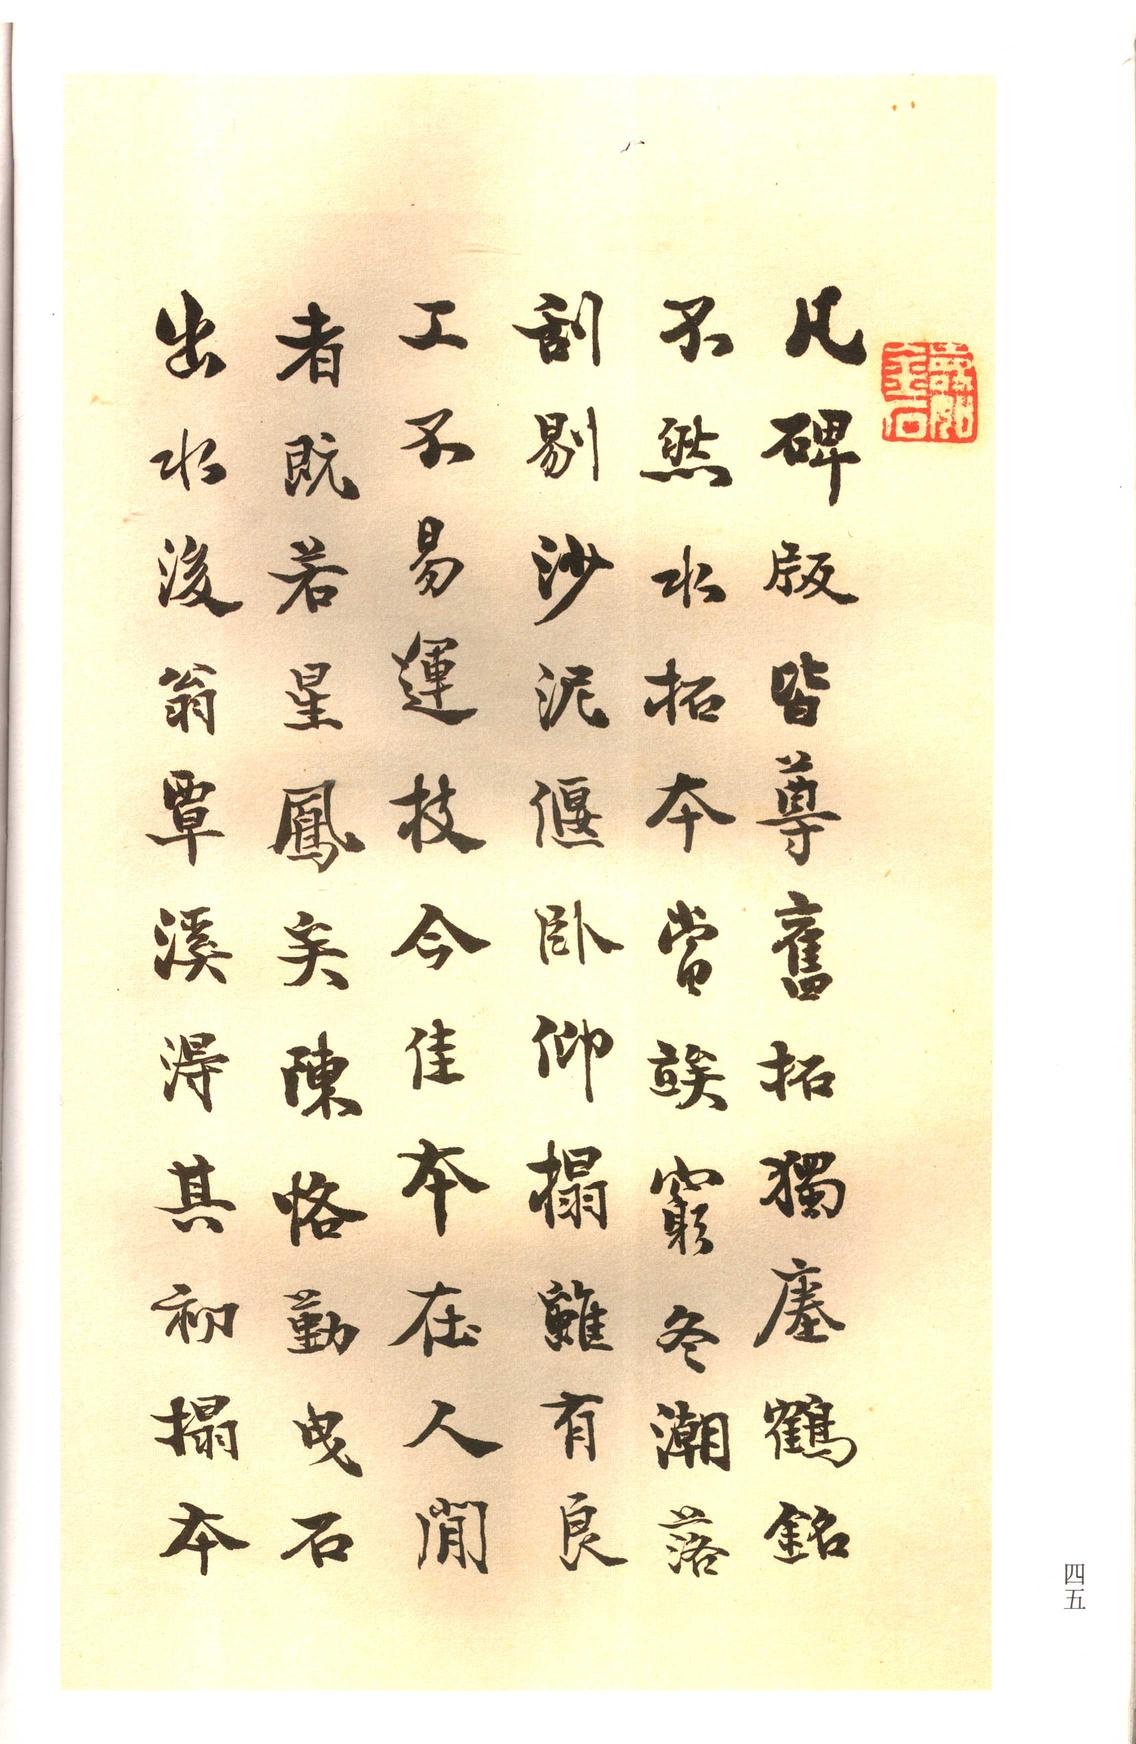 凡碑版皆尊舊拓獨瘞鶴銘
不然水拓本當竢窮冬潮落
刮剔沙泥偃臥仰搨雖有良
工不易運技今佳本在人間
者既若星鳳矣陳恪勤曳石
出水後翁覃溪得其初搨本
四五